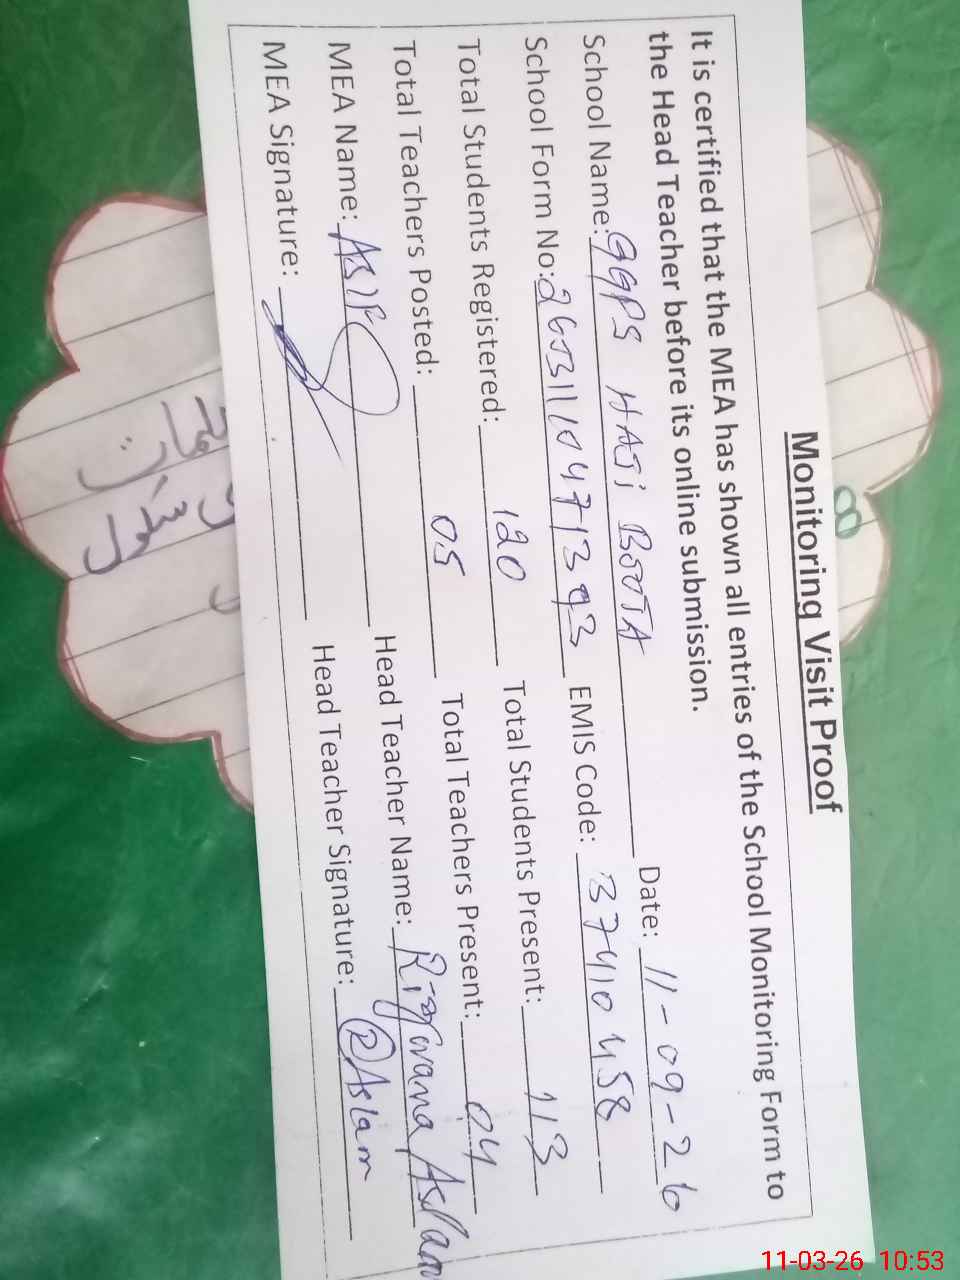 Monitoring Visit Proof
It is certified that the MEA has shown all entries of the School Monitoring Form to
the Head Teacher before its online submission.
School Name: GGPS HAJi BOOTA Date: 11-09-26
School Form No: EMIS Code: 37410458
Total Students Registered: 120 Total Students Present: 113
Total Teachers Posted: 05 Total Teachers Present: 04
MEA Name: ASIF Head Teacher Name: Aslam
MEA Signature: Head Teacher Signature: RAslam
8
سکول
11-03-26 10:53